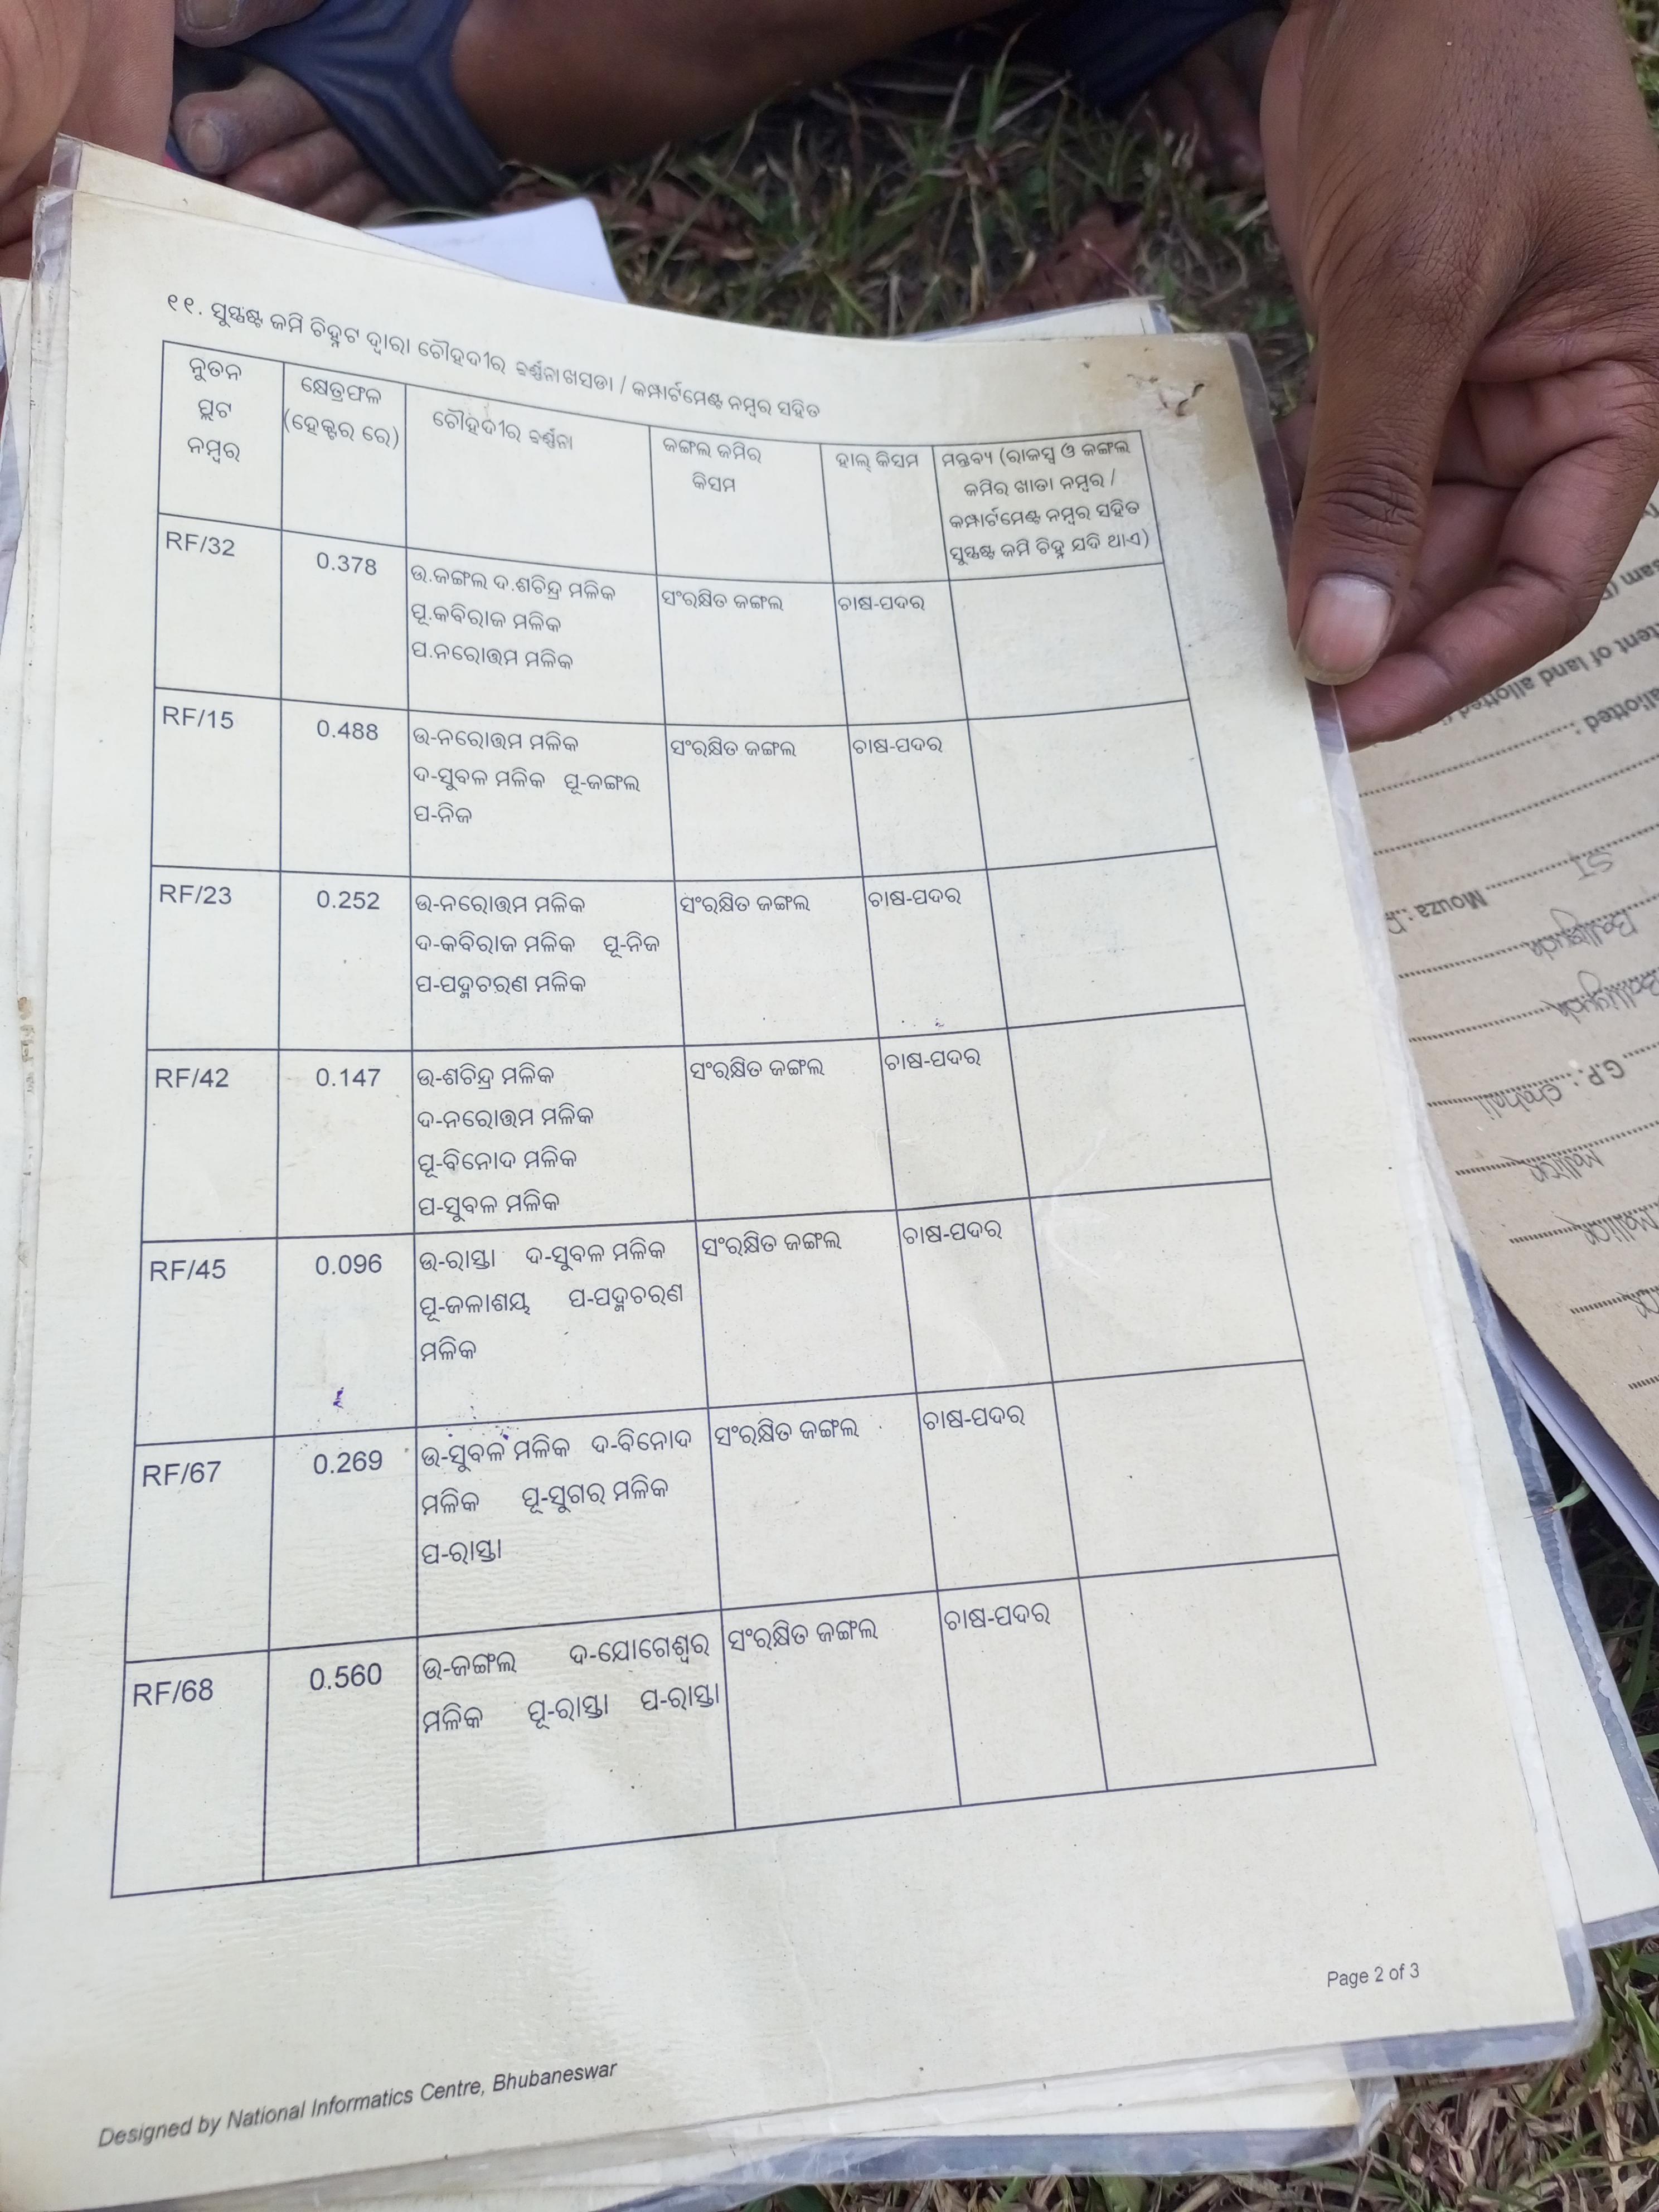 ୧୧. ସୁସ୍ପଷ୍ଟ ଜମି ଚିହ୍ନଟ ଦ୍ୱାରା ଚୌହଦୀର ବର୍ଣ୍ଣନା ଖସଡା / କମ୍ପାର୍ଟମେଣ୍ଟ ନମ୍ବର ସହିତ
ନୁତନ
ପ୍ଲଟ
ନମ୍ବର
କ୍ଷେତ୍ରଫଳ
(ହେକ୍ଟର ରେ)
ଚୌହଦୀର ବର୍ଣ୍ଣନା
ଜଙ୍ଗଲ ଜମିର
କିସମ
ହାଲ୍ କିସମ
ମନ୍ତବ୍ୟ (ରାଜସ୍ୱ ଓ ଜଙ୍ଗଲ
ଜମିର ଖାତା ନମ୍ବର /
କମ୍ପାର୍ଟମେଣ୍ଟ ନମ୍ବର ସହିତ
ସୁସ୍ପଷ୍ଟ ଜମି ଚିହ୍ନ ଯଦି ଥାଏ)
RF/32
0.378
ଉ.ଜଙ୍ଗଲ ଦ.ଶଚିନ୍ଦ୍ର ମଳିକ
ପୂ.କବିରାଜ ମଳିକ
ପ.ନରୋତ୍ତମ ମଳିକ
ସଂରକ୍ଷିତ ଜଙ୍ଗଲ
ଚାଷ-ପଦର
RF/15
0.488
ଉ-ନରୋତ୍ତମ ମଳିକ
ଦ-ସୁବଳ ମଳିକ ପୂ-ଜଙ୍ଗଲ
ପ-ନିଜ
ସଂରକ୍ଷିତ ଜଙ୍ଗଲ
ଚାଷ-ପଦର
RF/23
0.252
ଉ-ନରୋତ୍ତମ ମଳିକ
ଦ-କବିରାଜ ମଳିକ ପୂ-ନିଜ
ପ-ପଦ୍ମଚରଣ ମଳିକ
ସଂରକ୍ଷିତ ଜଙ୍ଗଲ
ଚାଷ-ପଦର
RF/42
0.147
ଉ-ଶଚିନ୍ଦ୍ର ମଳିକ
ଦ-ନରୋତ୍ତମ ମଳିକ
ପୂ-ବିନୋଦ ମଳିକ
ପ-ସୁବଳ ମଳିକ
ସଂରକ୍ଷିତ ଜଙ୍ଗଲ
ଚାଷ-ପଦର
RF/45
0.096
ଉ-ରାସ୍ତା ଦ-ସୁବଳ ମଳିକ
ପୂ-ଜଳାଶୟ ପ-ପଦ୍ମଚରଣ
ମଳିକ
ସଂରକ୍ଷିତ ଜଙ୍ଗଲ
ଚାଷ-ପଦର
RF/67
0.269
ଉ-ସୁବଳ ମଳିକ ଦ-ବିନୋଦ
ମଳିକ ପୂ-ସୁଗର ମଳିକ
ପ-ରାସ୍ତା
ସଂରକ୍ଷିତ ଜଙ୍ଗଲ
ଚାଷ-ପଦର
RF/68
0.560
ଉ-ଜଙ୍ଗଲ ଦ-ଯୋଗେଶ୍ୱର
ମଳିକ ପୂ-ରାସ୍ତା ପ-ରାସ୍ତା
ସଂରକ୍ଷିତ ଜଙ୍ଗଲ
ଚାଷ-ପଦର
Page 2 of 3
Designed by National Informatics Centre, Bhubaneswar
tent of land allotted
allotted :
ST
Mouza :
G.P. :